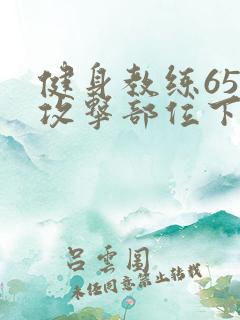 健身教练65
攻击部位下
吕云围
未经同意禁止转载